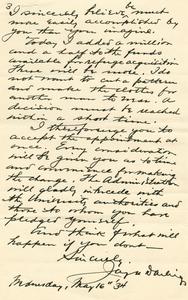 3
I sincerely believe, must
be
more easily accomplished by
you than you imagine.
Today I added a million
and a half to the funds
available for refuge acquisition
There will be more. Ides
must to cut a pattern
and make the clothes for
another man to wear. A
decision must be reached
within a short time.
I therefore urge you to
accept the appointment at
once. Any consideration
will be given you as to time
and convenience for making
the change. The Administration
will gladly intercede with
the University authorities and
those to whom you have
pledged yourself.
And think of what will
happen if you dont
Sincerely
Jay N Darling
Wednesday, May 16" 34